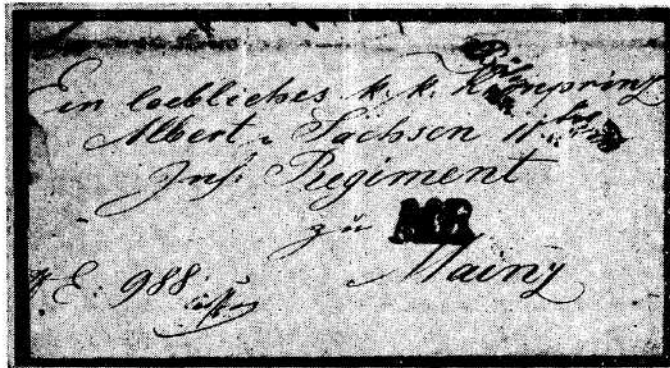 Ein loebliches k. k. Kronprinz
Albert v. Sachsen 11tes
Inf: Regiment
zu
Mainz
E: 988.